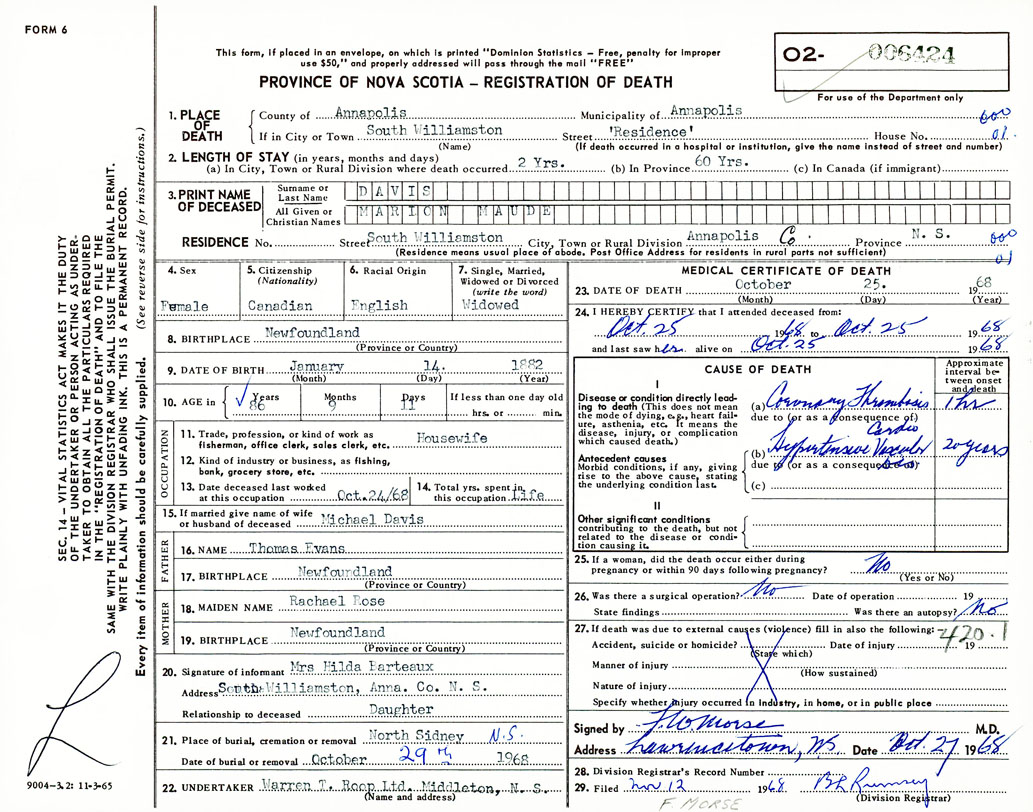 FORM 6
This form, if placed in an envelope, on which is printed "Dominion Statistics – Free, penalty for improper
use $50," and properly addressed will pass through the mail "FREE"
PROVINCE OF NOVA SCOTIA – REGISTRATION OF DEATH
02- 006424
For use of the Department only
SEC. 14 – VITAL STATISTICS ACT MAKES IT THE DUTY
OF THE UNDERTAKER OR PERSON ACTING AS UNDER-
TAKER TO OBTAIN ALL THE PARTICULARS REQUIRED
IN THE "REGISTRATION OF DEATH" AND TO FILE THE
SAME WITH THE DIVISION REGISTRAR WHO SHALL ISSUE THE BURIAL PERMIT.
WRITE PLAINLY WITH UNFADING INK. THIS IS A PERMANENT RECORD.
Every item of information should be carefully supplied. (See reverse side for instructions.)
1. PLACE OF DEATH
County of Annapolis Municipality of Annapolis 600
If in City or Town South Williamston Street 'Residence' House No. 01
(Name) (If death occurred in a hospital or institution, give the name instead of street and number)
2. LENGTH OF STAY (in years, months and days)
(a) In City, Town or Rural Division where death occurred 2 Yrs. (b) In Province 60 Yrs. (c) In Canada (if immigrant)
3. PRINT NAME OF DECEASED
Surname or Last Name DAVIS
All Given or Christian Names MARION MAUDE
RESIDENCE No. Street South Williamston City, Town or Rural Division Annapolis Co. Province N. S. 600
(Residence means usual place of abode. Post Office Address for residents in rural parts not sufficient) 01
4. Sex
Female
5. Citizenship
(Nationality)
Canadian
6. Racial Origin
English
7. Single, Married,
Widowed or Divorced
(write the word)
Widowed
8. BIRTHPLACE Newfoundland
(Province or Country)
9. DATE OF BIRTH January 14. 1882
(Month) (Day) (Year)
10. AGE in Years 86 Months 9 Days 11 If less than one day old
hrs. or min.
OCCUPATION
11. Trade, profession, or kind of work as
fisherman, office clerk, sales clerk, etc. Housewife
12. Kind of industry or business, as fishing,
bank, grocery store, etc.
13. Date deceased last worked
at this occupation Oct.24/68
14. Total yrs. spent in
this occupation Life
15. If married give name of wife
or husband of deceased Michael Davis
FATHER
16. NAME Thomas Evans
17. BIRTHPLACE Newfoundland
(Province or Country)
MOTHER
18. MAIDEN NAME Rachael Rose
19. BIRTHPLACE Newfoundland
(Province or Country)
20. Signature of informant Mrs Hilda Barteaux
Address South Williamston, Anna. Co. N. S.
Relationship to deceased Daughter
21. Place of burial, cremation or removal North Sidney N.S.
Date of burial or removal October 29th 1968
22. UNDERTAKER Warren T. Roop Ltd. Middleton, N. S.
(Name and address)
9004-3.2: 11-3-65
MEDICAL CERTIFICATE OF DEATH
23. DATE OF DEATH October 25. 1968
(Month) (Day) (Year)
24. I HEREBY CERTIFY that I attended deceased from:
Oct. 25 1968 to Oct. 25 1968
and last saw her alive on Oct. 25 1968
CAUSE OF DEATH
Approximate
interval be-
tween onset
and death
I
Disease or condition directly lead-
ing to death (This does not mean
the mode of dying, e.g., heart fail-
ure, asthenia, etc. It means the
disease, injury, or complication
which caused death.)
(a) Coronary Thrombosis 1 hr
due to (or as a consequence of)
Cardio
(b) Hypertensive Vascular 20 years
due to (or as a consequence of)
Antecedent causes
Morbid conditions, if any, giving
rise to the above cause, stating
the underlying condition last.
(c)
II
Other significant conditions
contributing to the death, but not
related to the disease or condi-
tion causing it.
25. If a woman, did the death occur either during
pregnancy or within 90 days following pregnancy? No
(Yes or No)
26. Was there a surgical operation? No Date of operation 19
State findings Was there an autopsy? No
27. If death was due to external causes (violence) fill in also the following: 420.1
Accident, suicide or homicide? Date of injury 19
(State which)
Manner of injury
(How sustained)
Nature of injury
Specify whether injury occurred in Industry, in home, or in public place
Signed by F. W. Morse M.D.
Address Lawrencetown, NS. Date Oct. 27 1968
28. Division Registrar's Record Number
29. Filed Nov 12 1968
(Division Registrar)
F. MORSE